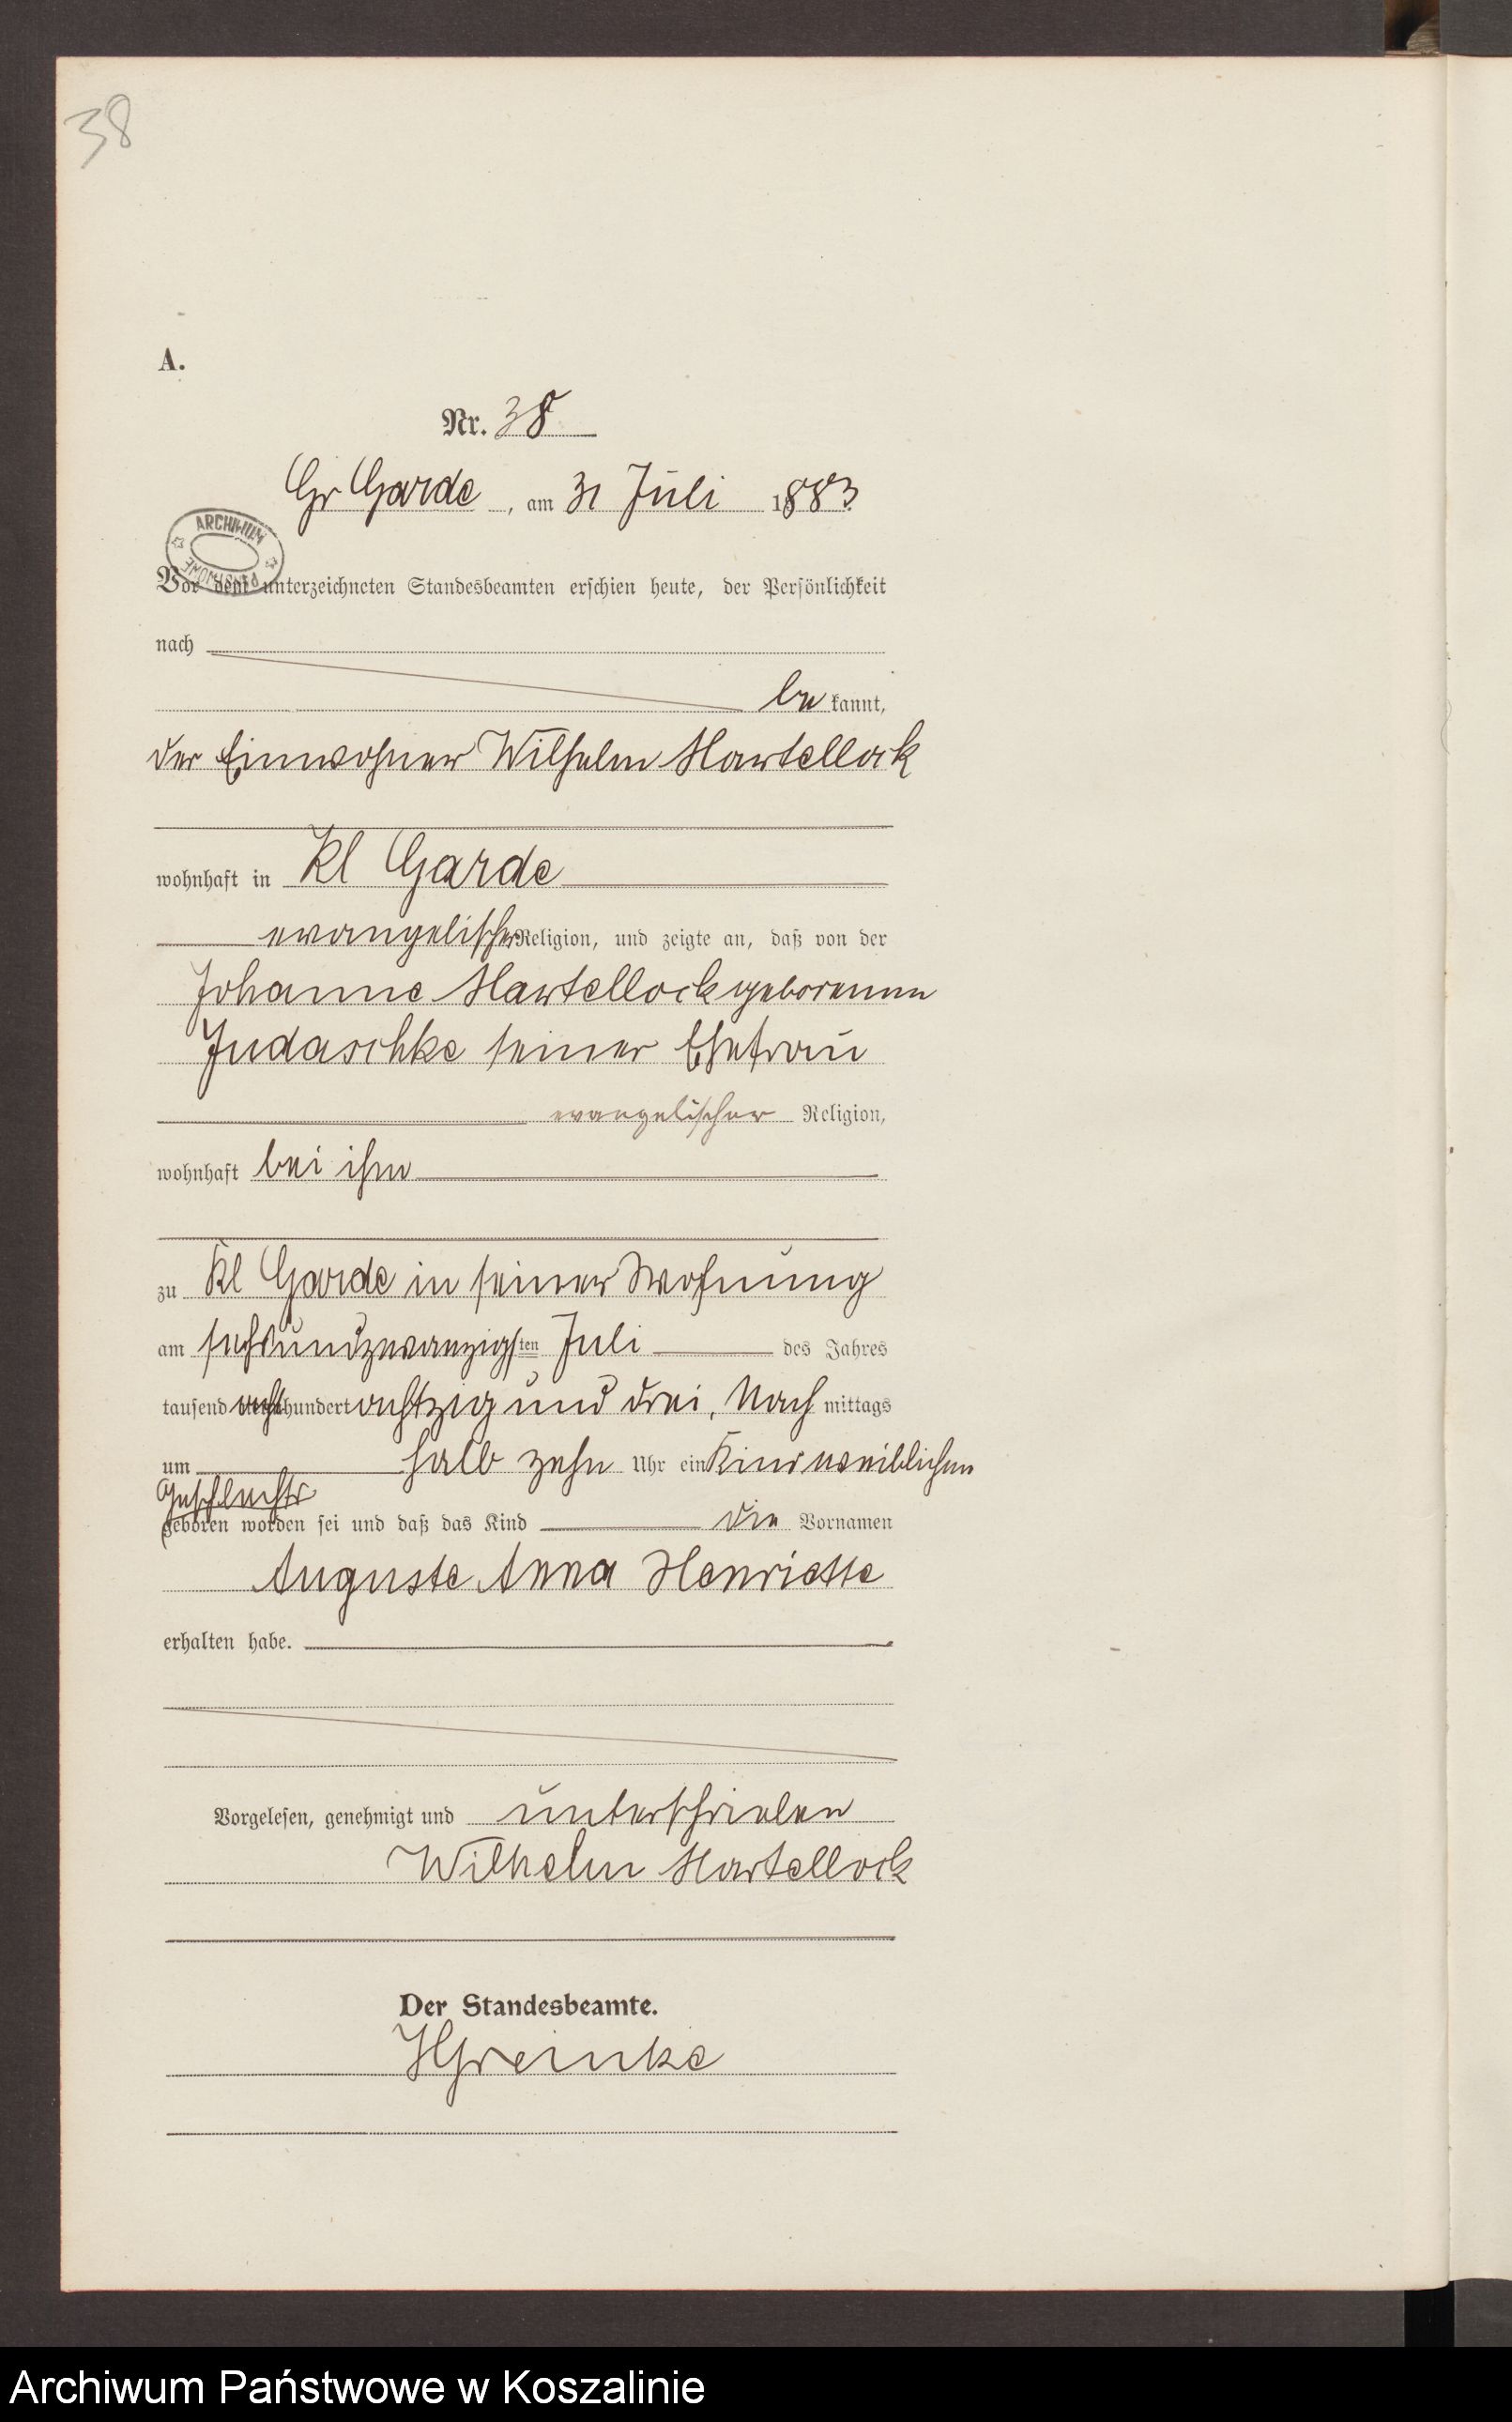 38
A.
Nr. 38
Gr Garde, am 31 Juli 1883
ARCHIWUM
PAŃSTWOWE
Vor dem unterzeichneten Standesbeamten erschien heute, der Persönlichkeit
nach
be kannt,
der Einwohner Wilhelm Martellock
wohnhaft in Kl Garde
evangelischer Religion, und zeigte an, daß von der
Johanne Martellock geborenen
Judaschke seiner Ehefrau
evangelischer Religion,
wohnhaft bei ihm
zu Kl Garde in seiner Wohnung
am sechsundzwanzigsten Juli des Jahres
tausend acht hundert achtzig und drei, Nach mittags
um halb zehn Uhr ein Kind weiblichen
Geschlechts
geboren worden sei und daß das Kind die Vornamen
Auguste Anna Henriette
erhalten habe.
Vorgelesen, genehmigt und unterschrieben
Wilhelm Martellock
Der Standesbeamte.
HGreinke
Archiwum Państwowe w Koszalinie